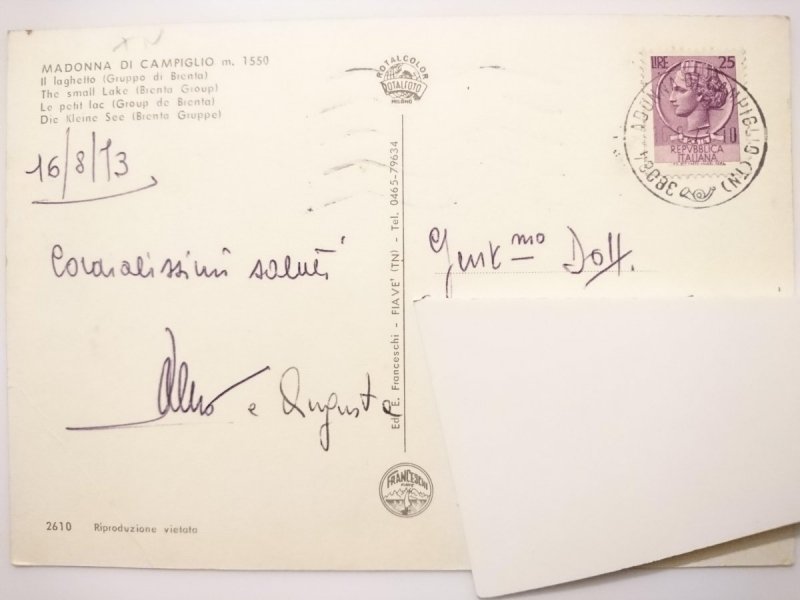 MADONNA DI CAMPIGLIO m. 1550
Il laghetto (Gruppo di Brenta)
The small Lake (Brenta Group)
Le petit lac (Group de Brenta)
Die Kleine See (Brenta Gruppe)
16/8/73
Cordialissimi saluti
e Augusta
2610 Riproduzione vietata
ROTALCOLOR
ROTALFOTO
MILANO
Ed. E. Franceschi - FIAVE' (TN) - Tel. 0465-79634
FRANCESCHI
FIAVE
LIRE 25
REPVBBLICA
ITALIANA
38084 MADONNA DI CAMPIGLIO (TN)
Gent.mo Dott.